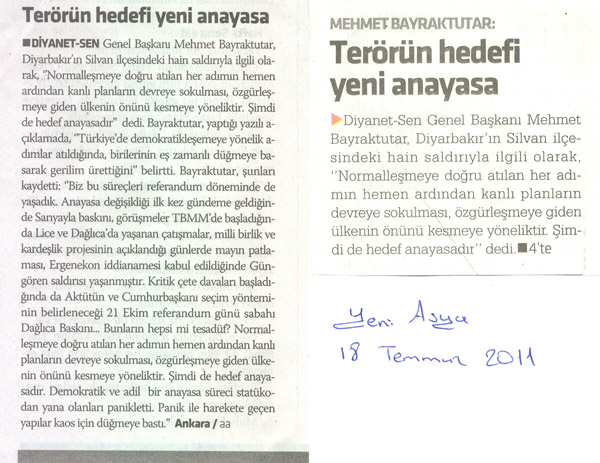 Terörün hedefi yeni anayasa
■DİYANET-SEN Genel Başkanı Mehmet Bayraktutar,
Diyarbakır'ın Silvan ilçesindeki hain saldırıyla ilgili ola-
rak, "Normalleşmeye doğru atılan her adımın hemen
ardından kanlı planların devreye sokulması, özgürleş-
meye giden ülkenin önünü kesmeye yöneliktir. Şimdi
de hedef anayasadır" dedi. Bayraktutar, yaptığı yazılı a-
çıklamada, "Türkiye'de demokratikleşemeye yönelik a-
dımlar atıldığında, birilerinin eş zamanlı düğmeye ba-
sarak gerilim ürettiğini" belirtti. Bayraktutar, şunları
kaydetti: "Biz bu süreçleri referandum döneminde de
yaşadık. Anayasa değişikliği ilk kez gündeme geldiğin-
de Sarıyayla baskını, görüşmeler TBMM'de başladığın-
da Lice ve Dağlıca'da yaşanan çatışmalar, milli birlik ve
kardeşlik projesinin açıklandığı günlerde mayın patla-
ması, Ergenekon iddianamesi kabul edildiğinde Gün-
gören saldırısı yaşanmıştır. Kritik çete davaları başladı-
ğında da Aktütün ve Cumhurbaşkanı seçim yöntemi-
nin belirleneceği 21 Ekim referandum günü sabahı
Dağlıca Baskını... Bunların hepsi mi tesadüf? Normal-
leşmeye doğru atılan her adımın hemen ardından kanlı
planların devreye sokulması, özgürleşmeye giden ülke-
nin önünü kesmeye yöneliktir. Şimdi de hedef anaya-
sadır. Demokratik ve adil bir anayasa süreci statüko-
dan yana olanları panikletti. Panik ile harekete geçen
yapılar kaos için düğmeye bastı." Ankara / aa
MEHMET BAYRAKTUTAR:
Terörün hedefi
yeni anayasa
▶Diyanet-Sen Genel Başkanı Mehmet
Bayraktutar, Diyarbakır'ın Silvan ilçe-
sindeki hain saldırıyla ilgili olarak,
"Normalleşmeye doğru atılan her adı-
mın hemen ardından kanlı planların
devreye sokulması, özgürleşmeye giden
ülkenin önünü kesmeye yöneliktir. Şim-
di de hedef anayasadır" dedi.■4'te
Yeni Asya
18 Temmuz 2011